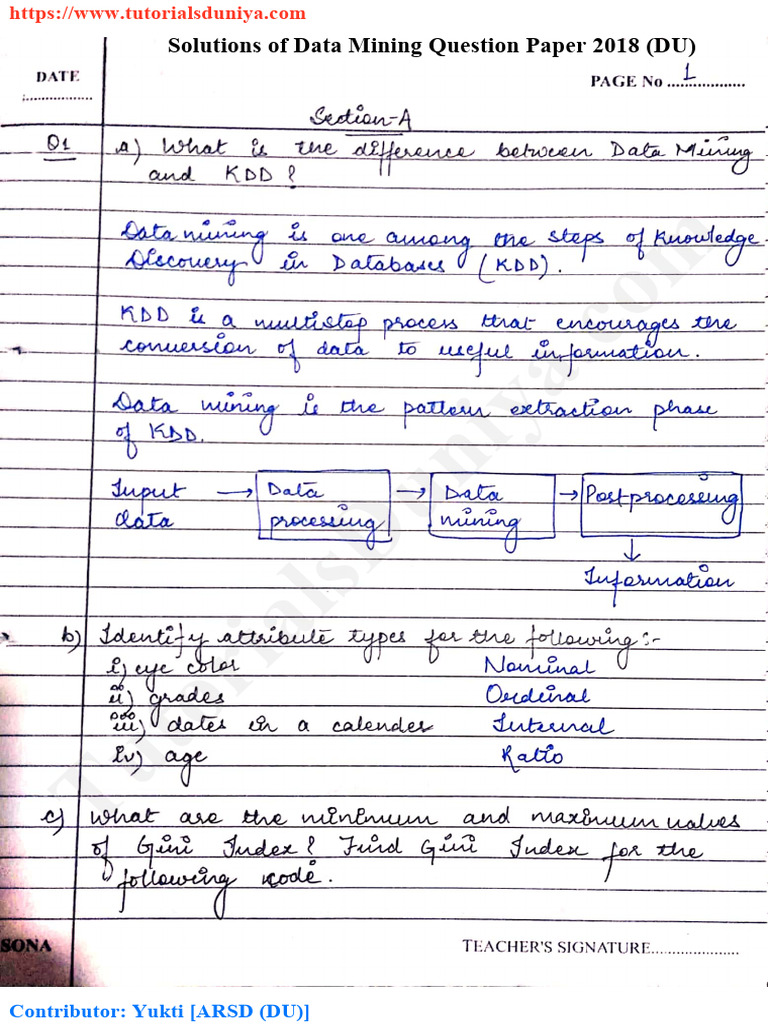 https://www.tutorialsduniya.com
Solutions of Data Mining Question Paper 2018 (DU)
DATE
:..................
PAGE No 1...................
Section-A
Q1 a) What is the difference between Data Mining
and KDD?
Data mining is one among the steps of Knowledge
Discovery in Databases (KDD).
KDD is a multistep process that encourages the
conversion of data to useful information.
Data mining is the pattern extraction phase
of KDD.
Input → Data → Data → Postprocessing
data processing mining
↓
Information
b) Identify attribute types for the following:-
i) eye color Nominal
ii) grades Ordinal
iii) dates in a calender Interval
iv) age Ratio
c) What are the minimum and maximum values
of Gini Index? Find Gini Index for the
following node.
SONA
TEACHER'S SIGNATURE.....................
TutorialsDuniya.com
Contributor: Yukti [ARSD (DU)]